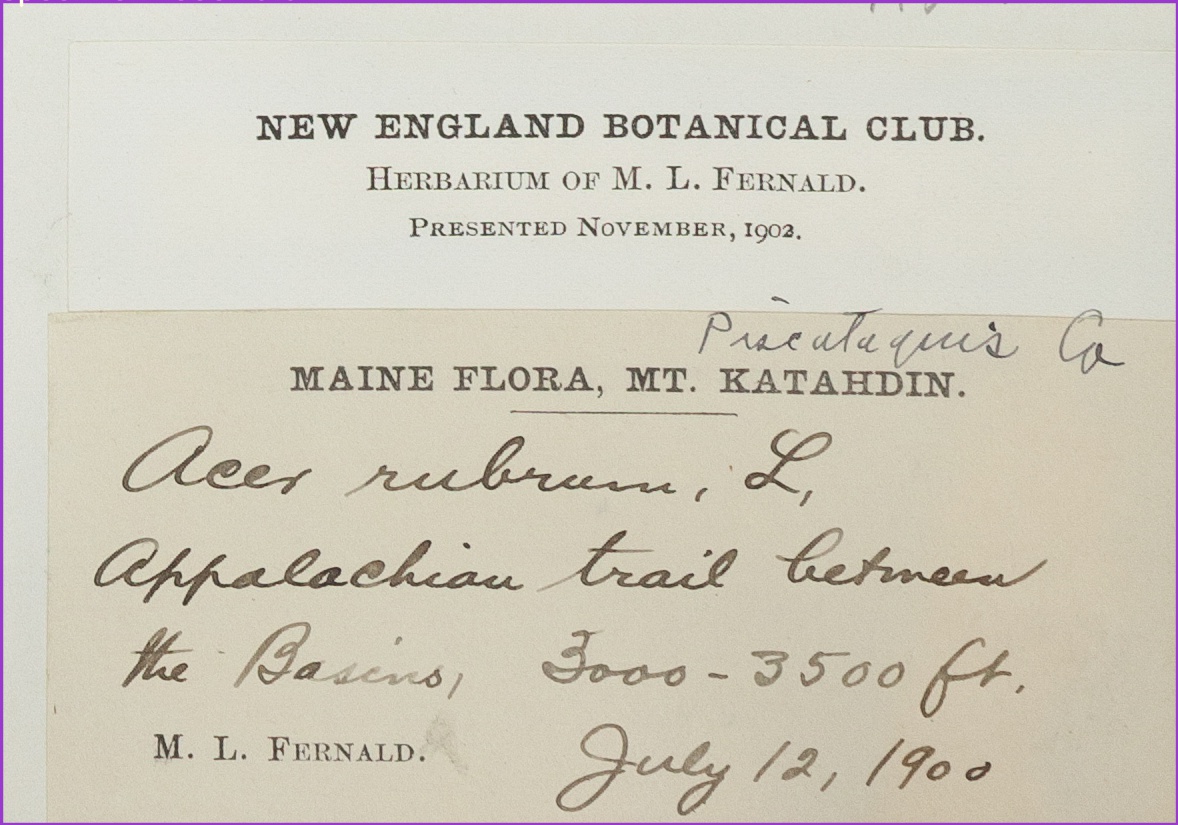 NEW ENGLAND BOTANICAL CLUB.
HERBARIUM OF M. L. FERNALD.
PRESENTED NOVEMBER, 1902.
Piscataquis Co
MAINE FLORA, MT. KATAHDIN.
Acer rubrum, L,
Appalachian trail between
the Basins, 3000 - 3500 ft.
M. L. FERNALD. July 12, 1900